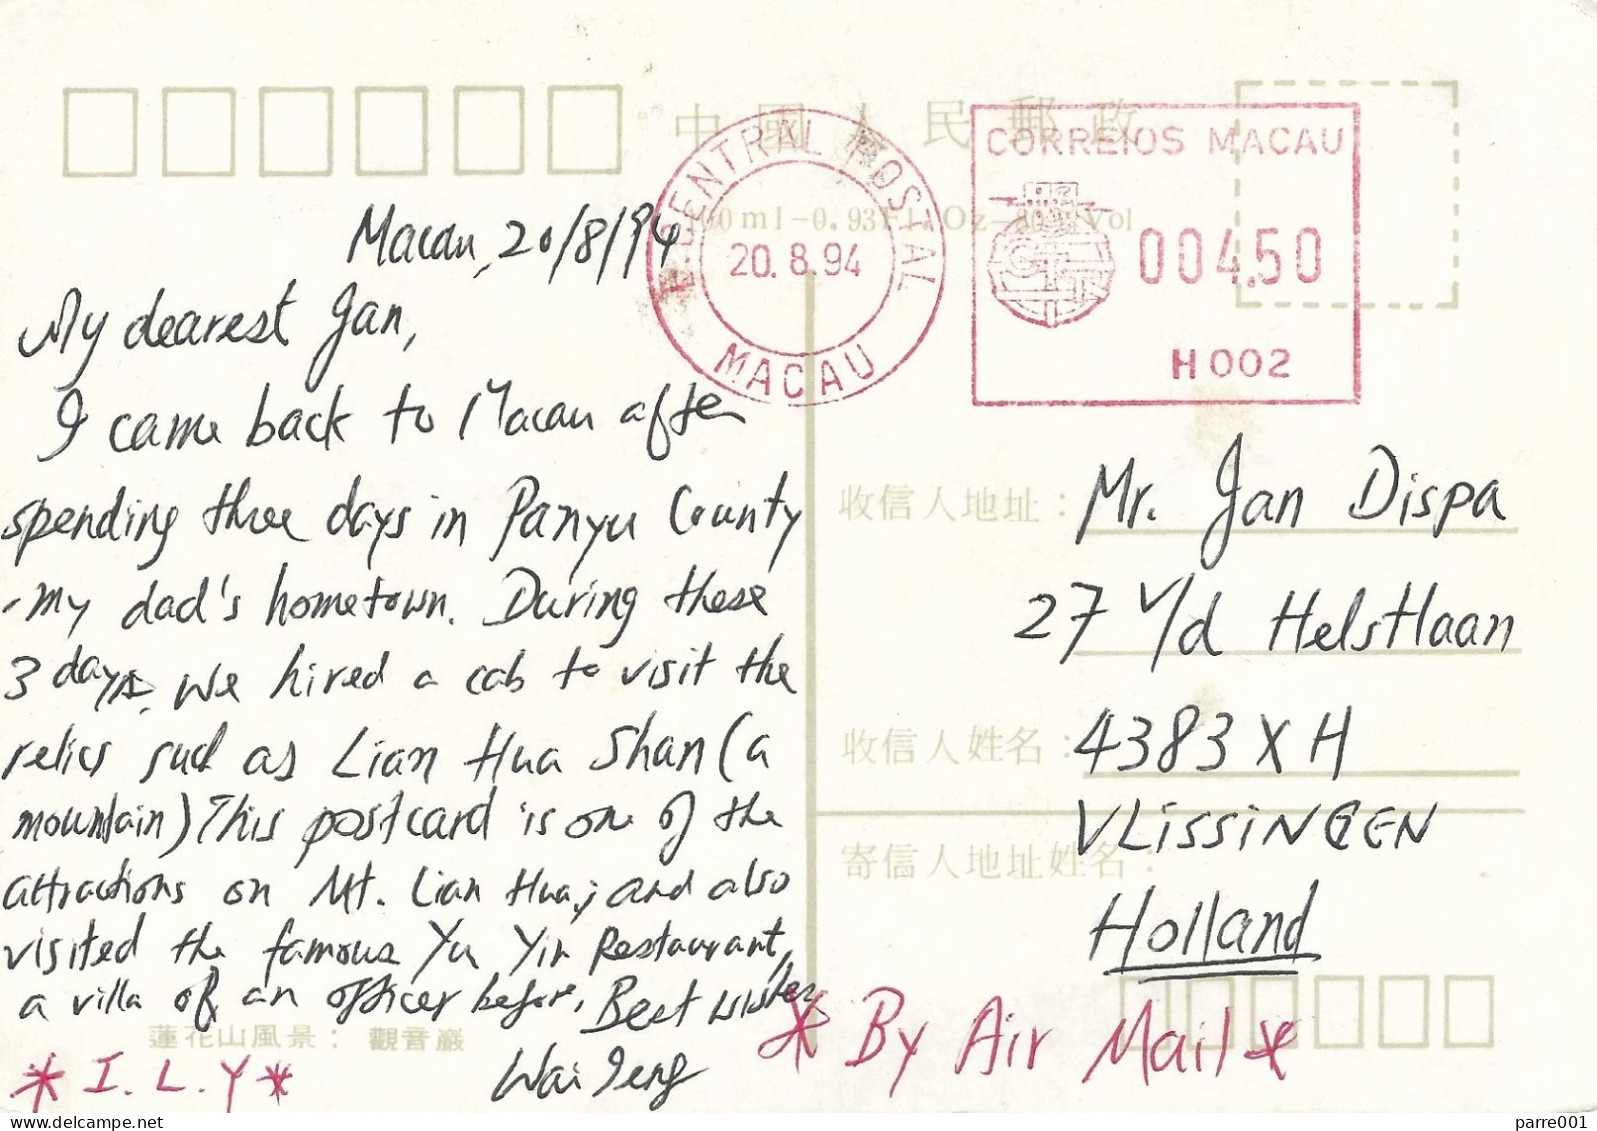 中國人民郵政
100ml-0.93Fl.Oz-80% Vol
CENTRAL POSTAL
20.8.94
MACAU
CORREIOS MACAU
CTT
004,50
H 002
Macau, 20/8/94
My dearest Jan,
I came back to Macau after
spending three days in Panyu County
-my dad's hometown. During these
3 days, we hired a cab to visit the
relics such as Lian Hua Shan (a
mountain) This postcard is one of the
attractions on Mt. Lian Hua; and also
visited the famous Yu Yin Restaurant,
a villa of an officer before. Best wishes
Wai
蓮花山風景： 觀音巖
* I. L. Y *
* By Air Mail *
收信人地址：
Mr. Jan Dispa
27 v/d Helstlaan
收信人姓名：
4383 XH
VLISSINGEN
寄信人地址姓名：
Holland
parre001